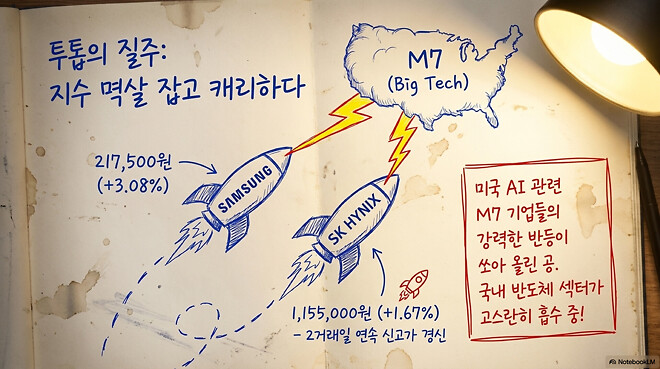 투톱의 질주:
지수 멱살 잡고 캐리하다
M7
(Big Tech)
217,500원
(+3.08%)
SAMSUNG
SK HYNIX
1,155,000원 (+1.67%)
- 2거래일 연속 신고가 경신
미국 AI 관련
M7 기업들의
강력한 반등이
쏘아 올린 공.
국내 반도체 섹터가
고스란히 흡수 중!
NotebookLM